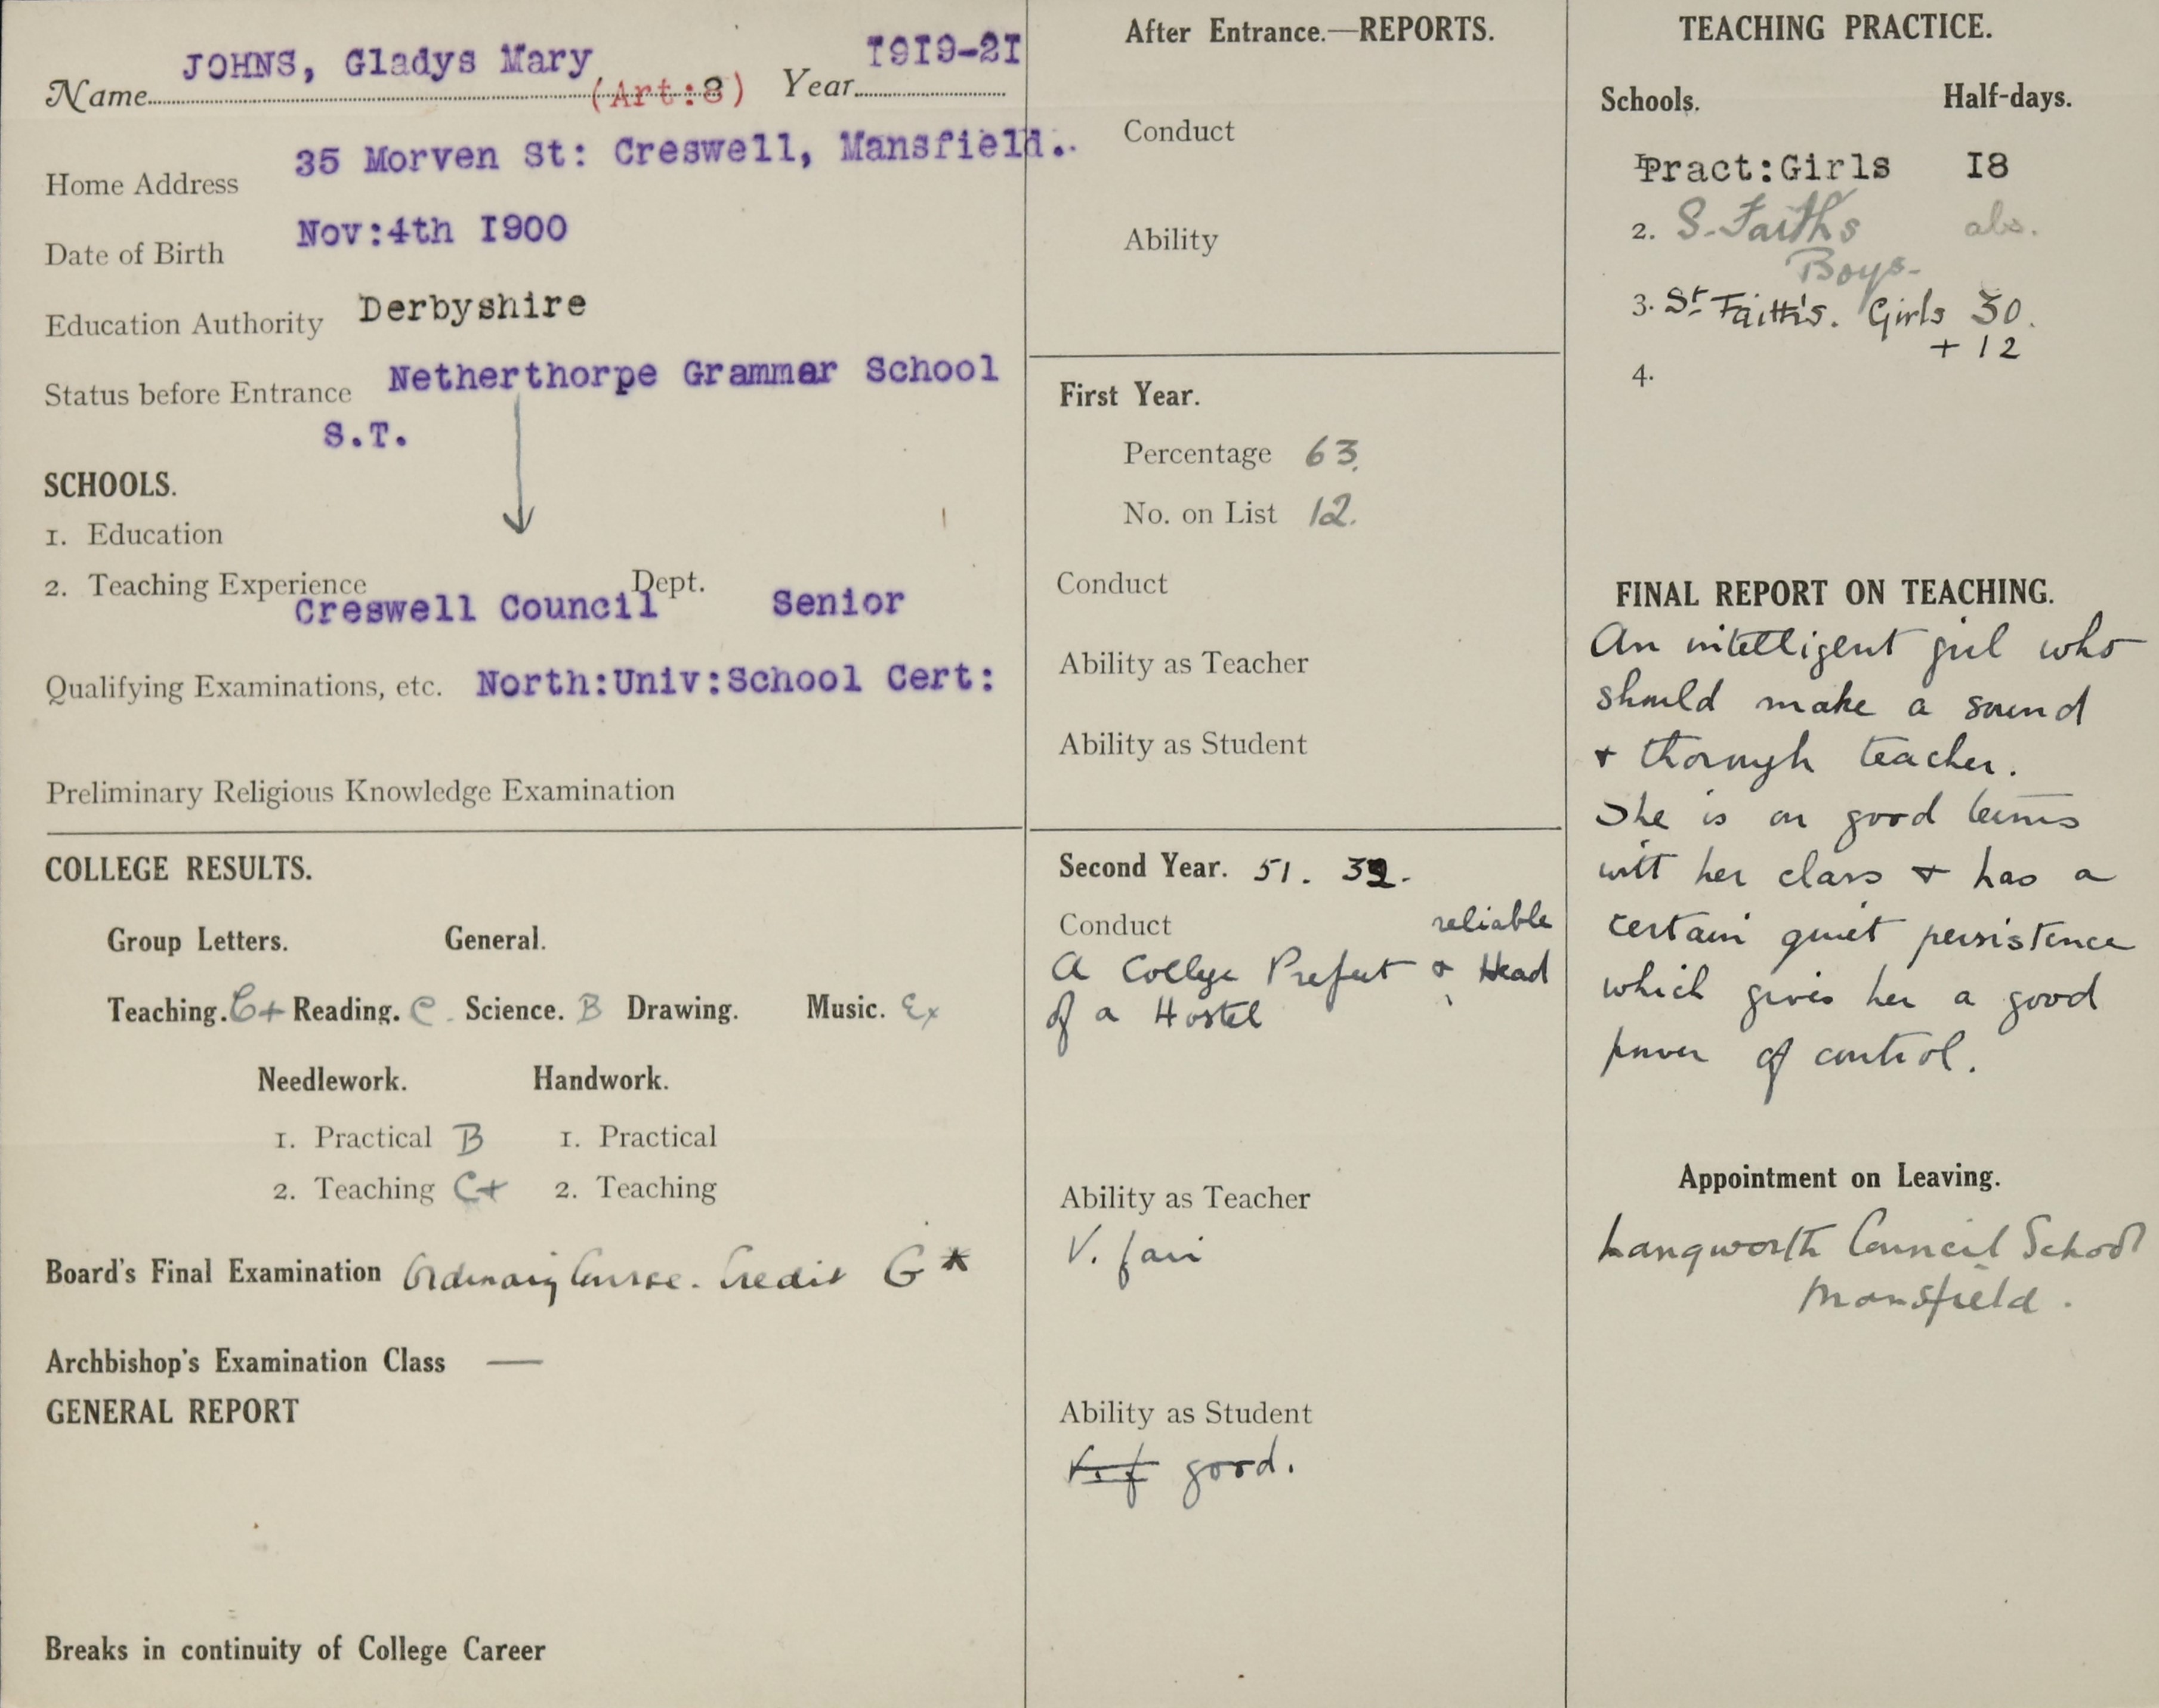 Name JOHNS, Gladys Mary (Art:8) Year 1919-21
Home Address 35 Morven St: Creswell, Mansfield.
Date of Birth Nov:4th 1900
Education Authority Derbyshire
Status before Entrance Netherthorpe Grammar School
S.T.
SCHOOLS.
1. Education
2. Teaching Experience Creswell Council Dept. Senior
Qualifying Examinations, etc. North:Univ:School Cert:
Preliminary Religious Knowledge Examination
COLLEGE RESULTS.
Group Letters. General.
Teaching. C+ Reading. C. Science. B Drawing. Music. Ex
Needlework. Handwork.
1. Practical B 1. Practical
2. Teaching C+ 2. Teaching
Board's Final Examination Ordinary Course. Credit G *
Archbishop's Examination Class —
GENERAL REPORT
Breaks in continuity of College Career
After Entrance.—REPORTS.
Conduct
Ability
First Year.
Percentage 63.
No. on List 12.
Conduct
Ability as Teacher
Ability as Student
Second Year. 51. 32.
Conduct reliable
A College Prefect & Head
of a Hostel
Ability as Teacher
V. fair
Ability as Student
V. f good.
TEACHING PRACTICE.
Schools. Half-days.
Pract:Girls 18
2. S. Faiths abs.
Boys.
3. St Faith's. Girls 30.
+ 12
4.
FINAL REPORT ON TEACHING.
An intelligent girl who
should make a sound
& thorough teacher.
She is on good terms
with her class & has a
certain quiet persistence
which gives her a good
power of control.
Appointment on Leaving.
Langworth Council School
Mansfield.